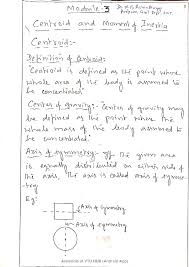 Module-3
Centroid and Moment of Inertia
Centroid:-
Definition of Centroid:-
"Centroid is defined as the point where
whole area of the body is assumed to
be concentrated"
Center of gravity:- Center of gravity may
be defined as the point where the
whole mass of the body assumed to
be concentrated.
Axis of symmetry:- If the given area
is equally distributed on either side of
the axis, the axis is called axis of symme-
-try
Eg:
Axis of Symmetry
Axis of symmetry